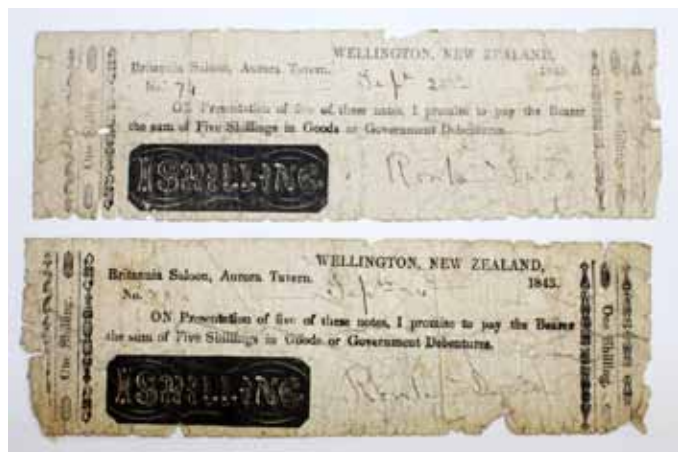 WELLINGTON, NEW ZEALAND,
Britannia Saloon, Aurora Tavern. Sept 1843.
No. 74
ON Presentation of five of these notes, I promise to pay the Bearer
the sum of Five Shillings in Goods or Government Debentures.
1 SHILLING
One Shilling.
One Shilling.
WELLINGTON, NEW ZEALAND,
Britannia Saloon, Aurora Tavern. Sept 1843.
No.
ON Presentation of five of these notes, I promise to pay the Bearer
the sum of Five Shillings in Goods or Government Debentures.
1 SHILLING
One Shilling.
One Shilling.